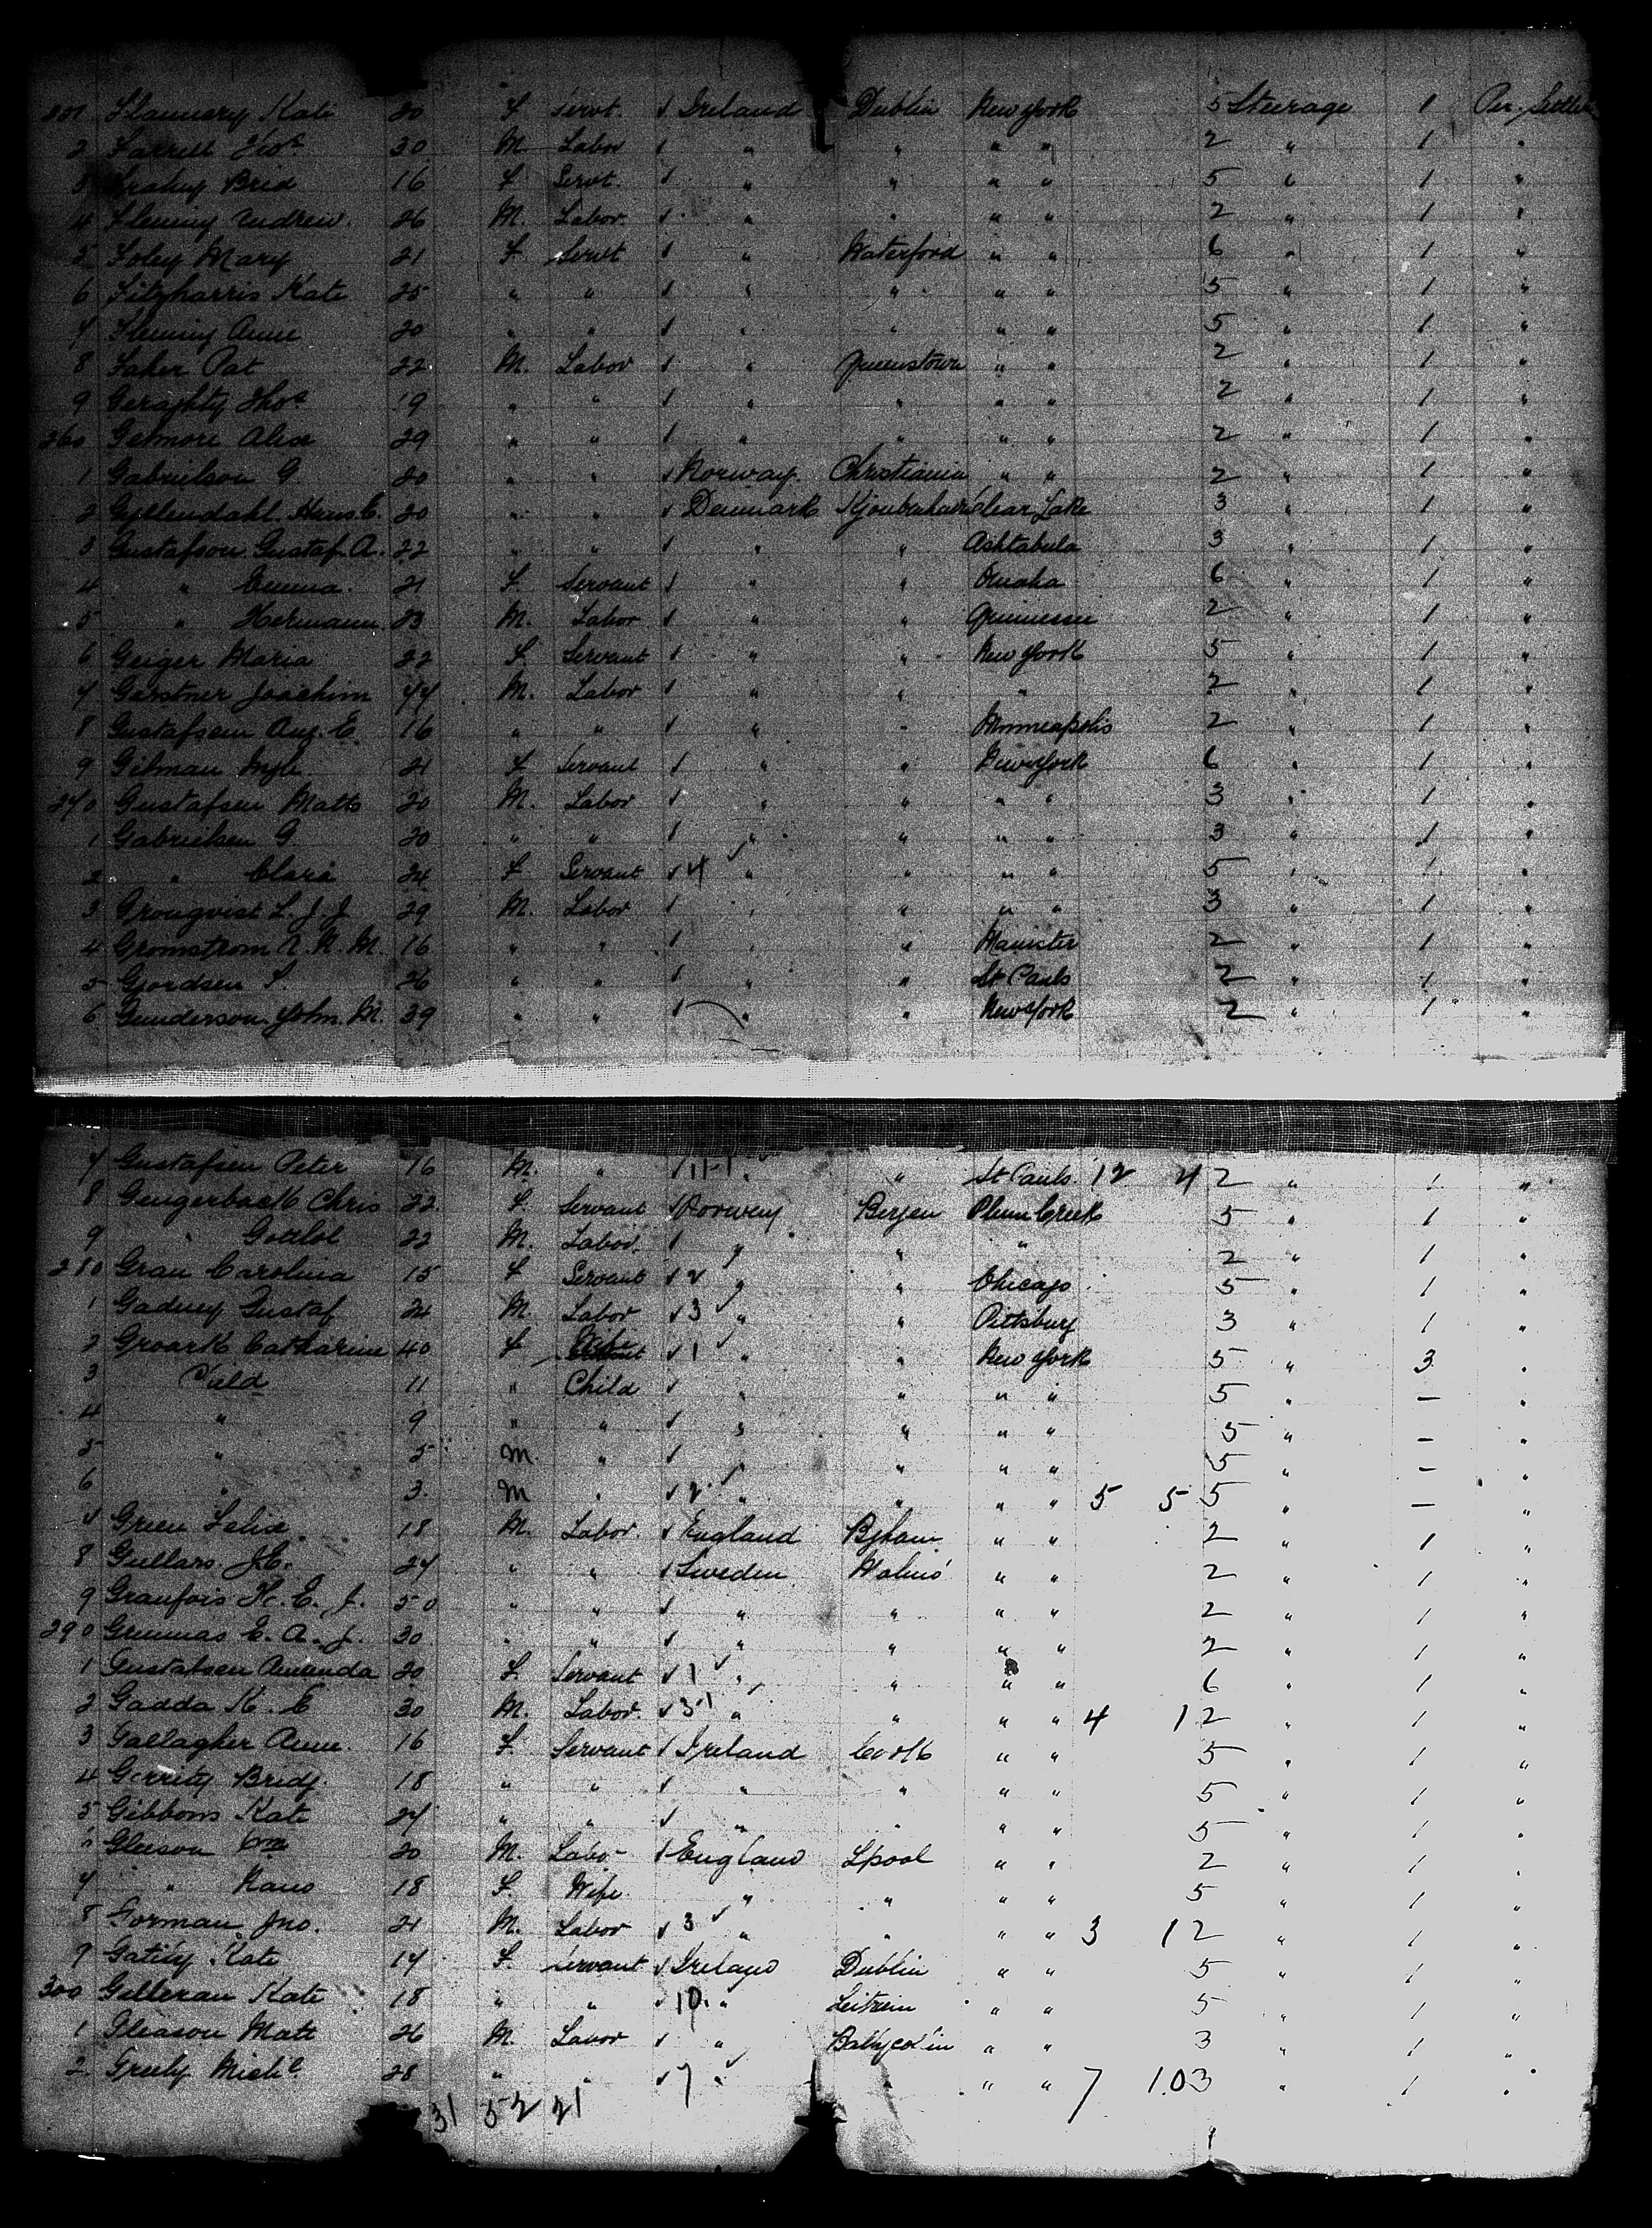 251 Flannery Kate 20 F Servt. Ireland Dublin New York 5 Steerage 1 Per. Settler
2 Farrell Thos 30 M. Labor " " " " 2 " 1 "
3 Brid 16 F Servt. " " " " 5 " 1 "
4 Fleming Andrew. 26 M. Labor. " " " " 2 " 1 "
5 Foley Mary 21 F Servt " Waterford " " 6 " 1 "
6 Fitzharris Kate 25 " " " " " " 5 " 1 "
7 Fleming Anne 20 " " " " " " 5 " 1 "
8 Faher Pat 22 M. Labor " Queenstown " " 2 " 1 "
9 Geraghty Thos 19 " " " " " " 2 " 1 "
260 Gelmore Alex 29 " " " " " " 2 " 1 "
1 Gabrielson G. 20 " " Norway. Christiania " " 2 " 1 "
2 Gyllendahl. Hans. C. 20 " " Denmark Kjoubenhavn Clear Lake 3 " 1 "
3 Gustafson Gustaf A. 22 " " " " Ashtabula 3 " 1 "
4 " Emma. 21 F. Servant " " Omaha 6 " 1 "
5 " Hermann. 23 M. Labor " " Quinessee 2 " 1 "
6 Geiger Maria 22 F. Servant " " New York 5 " 1 "
7 Gerstner Joachim 44 M. Labor " " " 2 " 1 "
8 Gustafsen Aug. E. 16 " " " " Minneapolis 2 " 1 "
9 Gilman 21 F Servant " " New York 6 " 1 "
270 Gustafsen Matts 20 M. Labor " " " " 3 " 1 "
1 Gabrielsen G. 20 " " " " " " 3 " 1 "
2 " Clara 24 F Servant 4 " " " " 5 " 1 "
3 Gronqvist L. J. J. 29 M. Labor " " " " 3 " 1 "
4 Gromstrom A. N. M. 16 " " " " 2 " 1 "
5 Gjordsen S. 26 " " " " St Pauls 2 " 1 "
6 Gunderson. John. M. 39 " " " " New York 2 " 1 "
7 Gustafsen Peter 16 M. " 11-1 " " St Pauls. 12 4 2 " 1 "
8 Gengerback Chris 22 F. Servant Norway Bergen Plum Creek 5 " 1 "
9 " Gotlob 22 M. Labor. " " " 2 " 1 "
280 Gran Carolina 15 F Servant 2 " " Chicago 5 " 1 "
1 Gadney Gustaf 24 M. Labor 3 " " Pittsburg 3 " 1 "
2 Groark Catharine 40 F Wife 1 " " New York 5 " 3 "
3 Child 11 " Child " " " " 5 " — "
4 " 9 " " " " " " 5 " — "
5 " 5 M. " " " " " 5 " — "
6 " 3. M " 2 " " " " 5 5 5 " — "
7 Green Felix. 18 M. Labor. England Bgham " " 2 " 1 "
8 Gullars. J.C. 24 " " Sweden Malmö " " 2 " 1 "
9 Granfois K. E. J. 50 " " " " " " 2 " 1 "
290 Grunnas E. A. J. 30 " " " " " " 2 " 1 "
1 Gustafsen Amanda 20 F. Servant 1 " " " " 6 " 1 "
2 Gadda K. E 30 M. Labor. 3-1 " " " " 4 12 " 1 "
3 Gallagher Anne. 16 F. Servant Ireland Cork " " 5 " 1 "
4 Gerrity Bridg. 18 " " " " " " 5 " 1 "
5 Gibbons Kate 24 " " " " " " 5 " 1 "
6 Gleeson Wm 20 M. Labor England Lpool " " 2 " 1 "
7 " 18 F. Wife. " " " " 5 " 1 "
8 Gorman Jno. 21 M. Labor 3 " " " " 3 12 " 1 "
9 Gatity Kate 14 F. Servant Ireland Dublin " " 5 " 1 "
300 Gilleran Kate 18 " " 10. " Leitrim " " 5 " 1 "
1 Gleason Matt 26 M. Labor " " " 3 " 1 "
2. Greely Michl 28 " " 7 " " " " 7 103 " 1 "
31 52 21